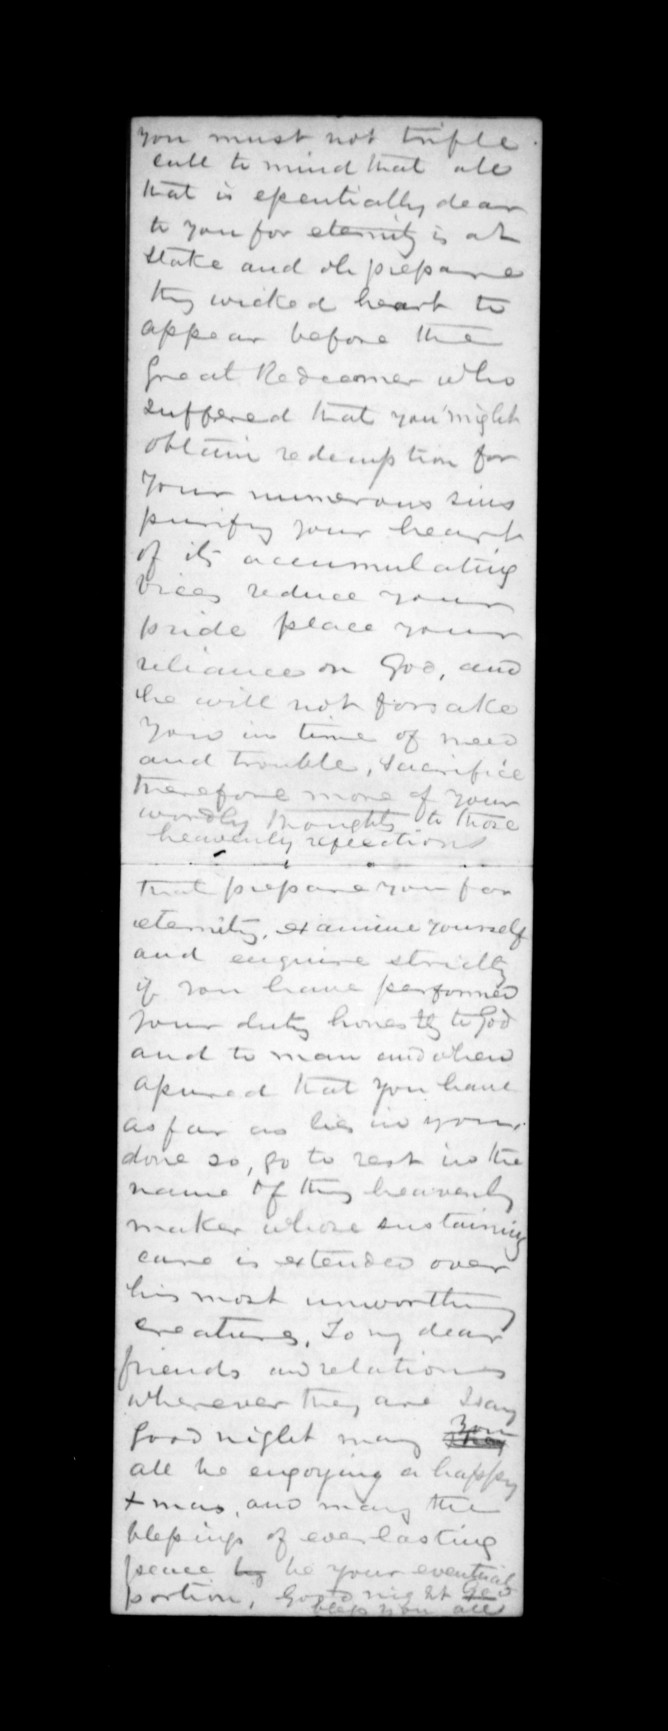 you must not trifle
call to mind that all
that is essentially dear
to you for eternity is at
stake and oh prepare
thy wicked heart to
appear before the
Great Redeemer who
suffered that you might
obtain redemption for
your numerous sins
purify your heart
of its accumulating
vices reduce your
pride place your
reliance on God, and
he will not forsake
you in time of need
and trouble, sacrifice
therefore more of your
wordly thoughts to those
heavenly reflections
that prepare you for
eternity, examine yourself
and enquire strictly
if you have performed
your duty honestly to God
and to man and when
assured that you have
as far as lies in your
done so, go to rest in the
name of thy heavenly
maker whose sustaining
care is extended over
his most unworthy
creatures, To my dear
friends and relations
wherever they are I say
good night may you
all be enjoying a happy
Xmas, and may the
blessings of everlasting
peace be your eventual
portion, Good night God
bless you all